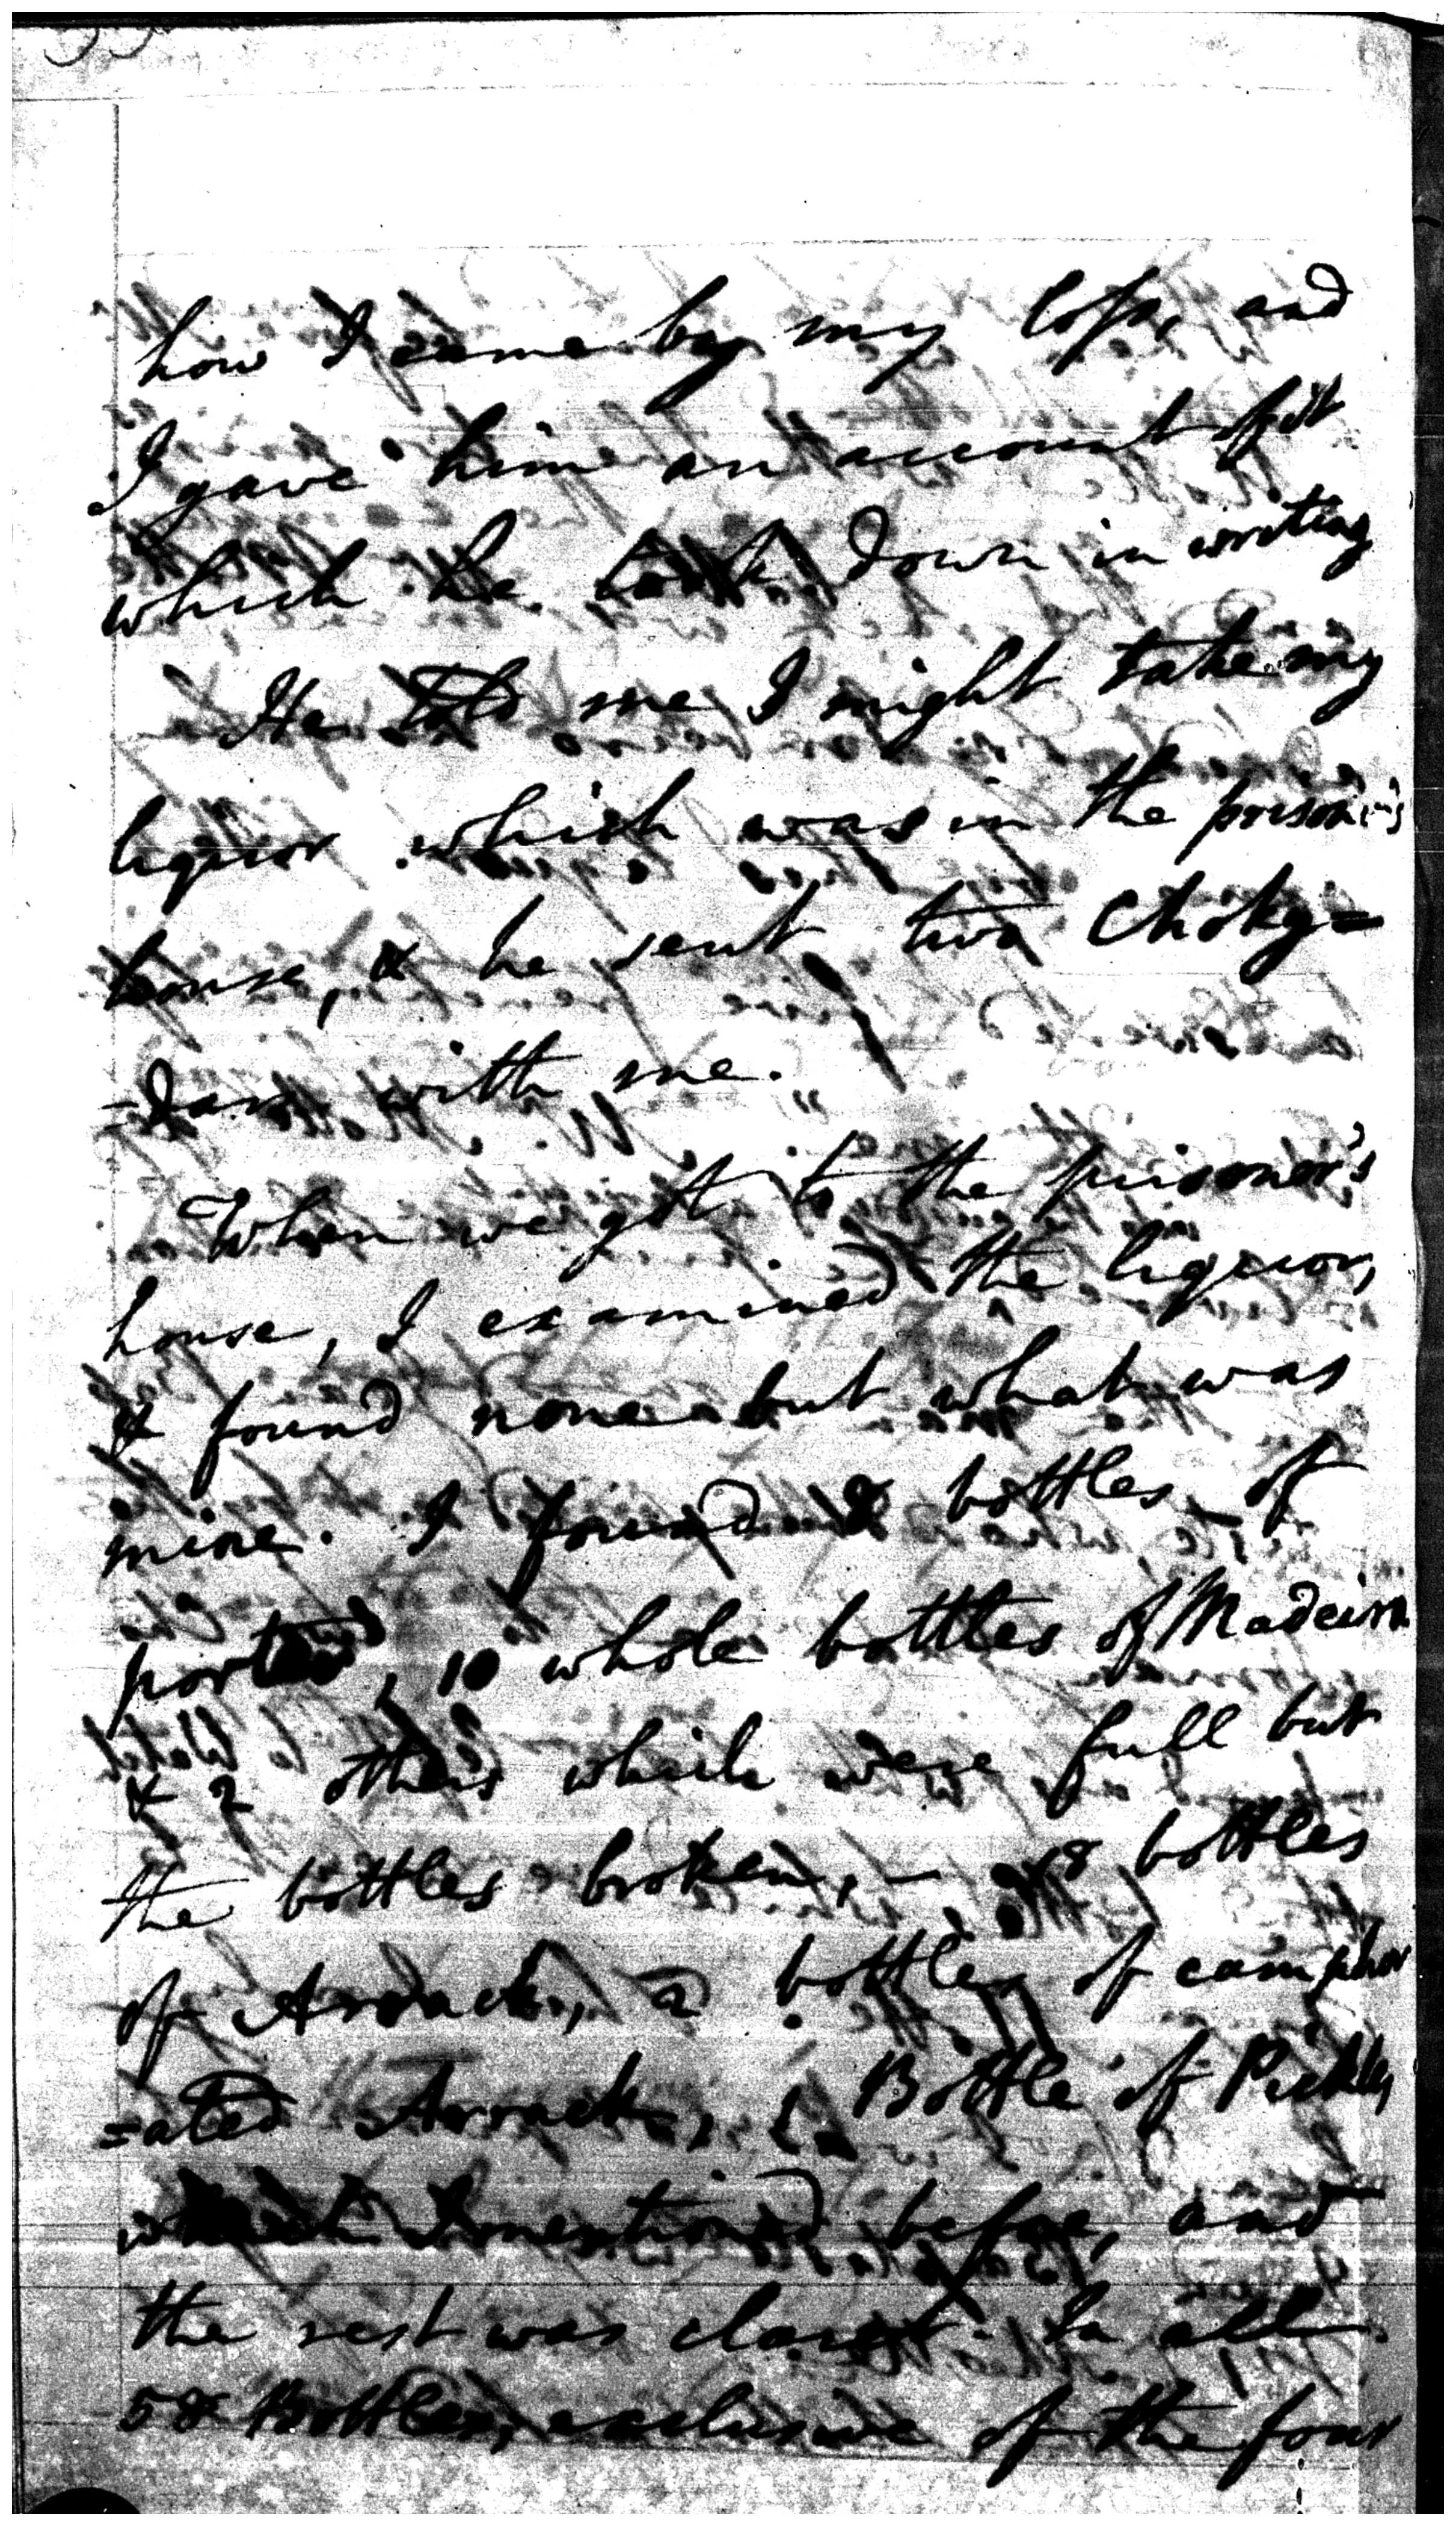 how I came by my loss, and
I gave him an account of it
which he took down in writing
He told me I might take my
liquor which was in the prisoner's
house, & he sent two Choky=
=dars with me.
When we got to the prisoner's
house, I examined the liquor,
& found none but what was
mine. I found 8 bottles of
porter, 10 whole bottles of Madeira
& 2 others which were full but
the bottles broken, – 8 bottles
of Arrack, 2 bottles of camphor
=ated Arrack, 1 Bottle of Pickles
I mentioned before, and
the rest was claret. In all
58 Bottles, exclusive of the four